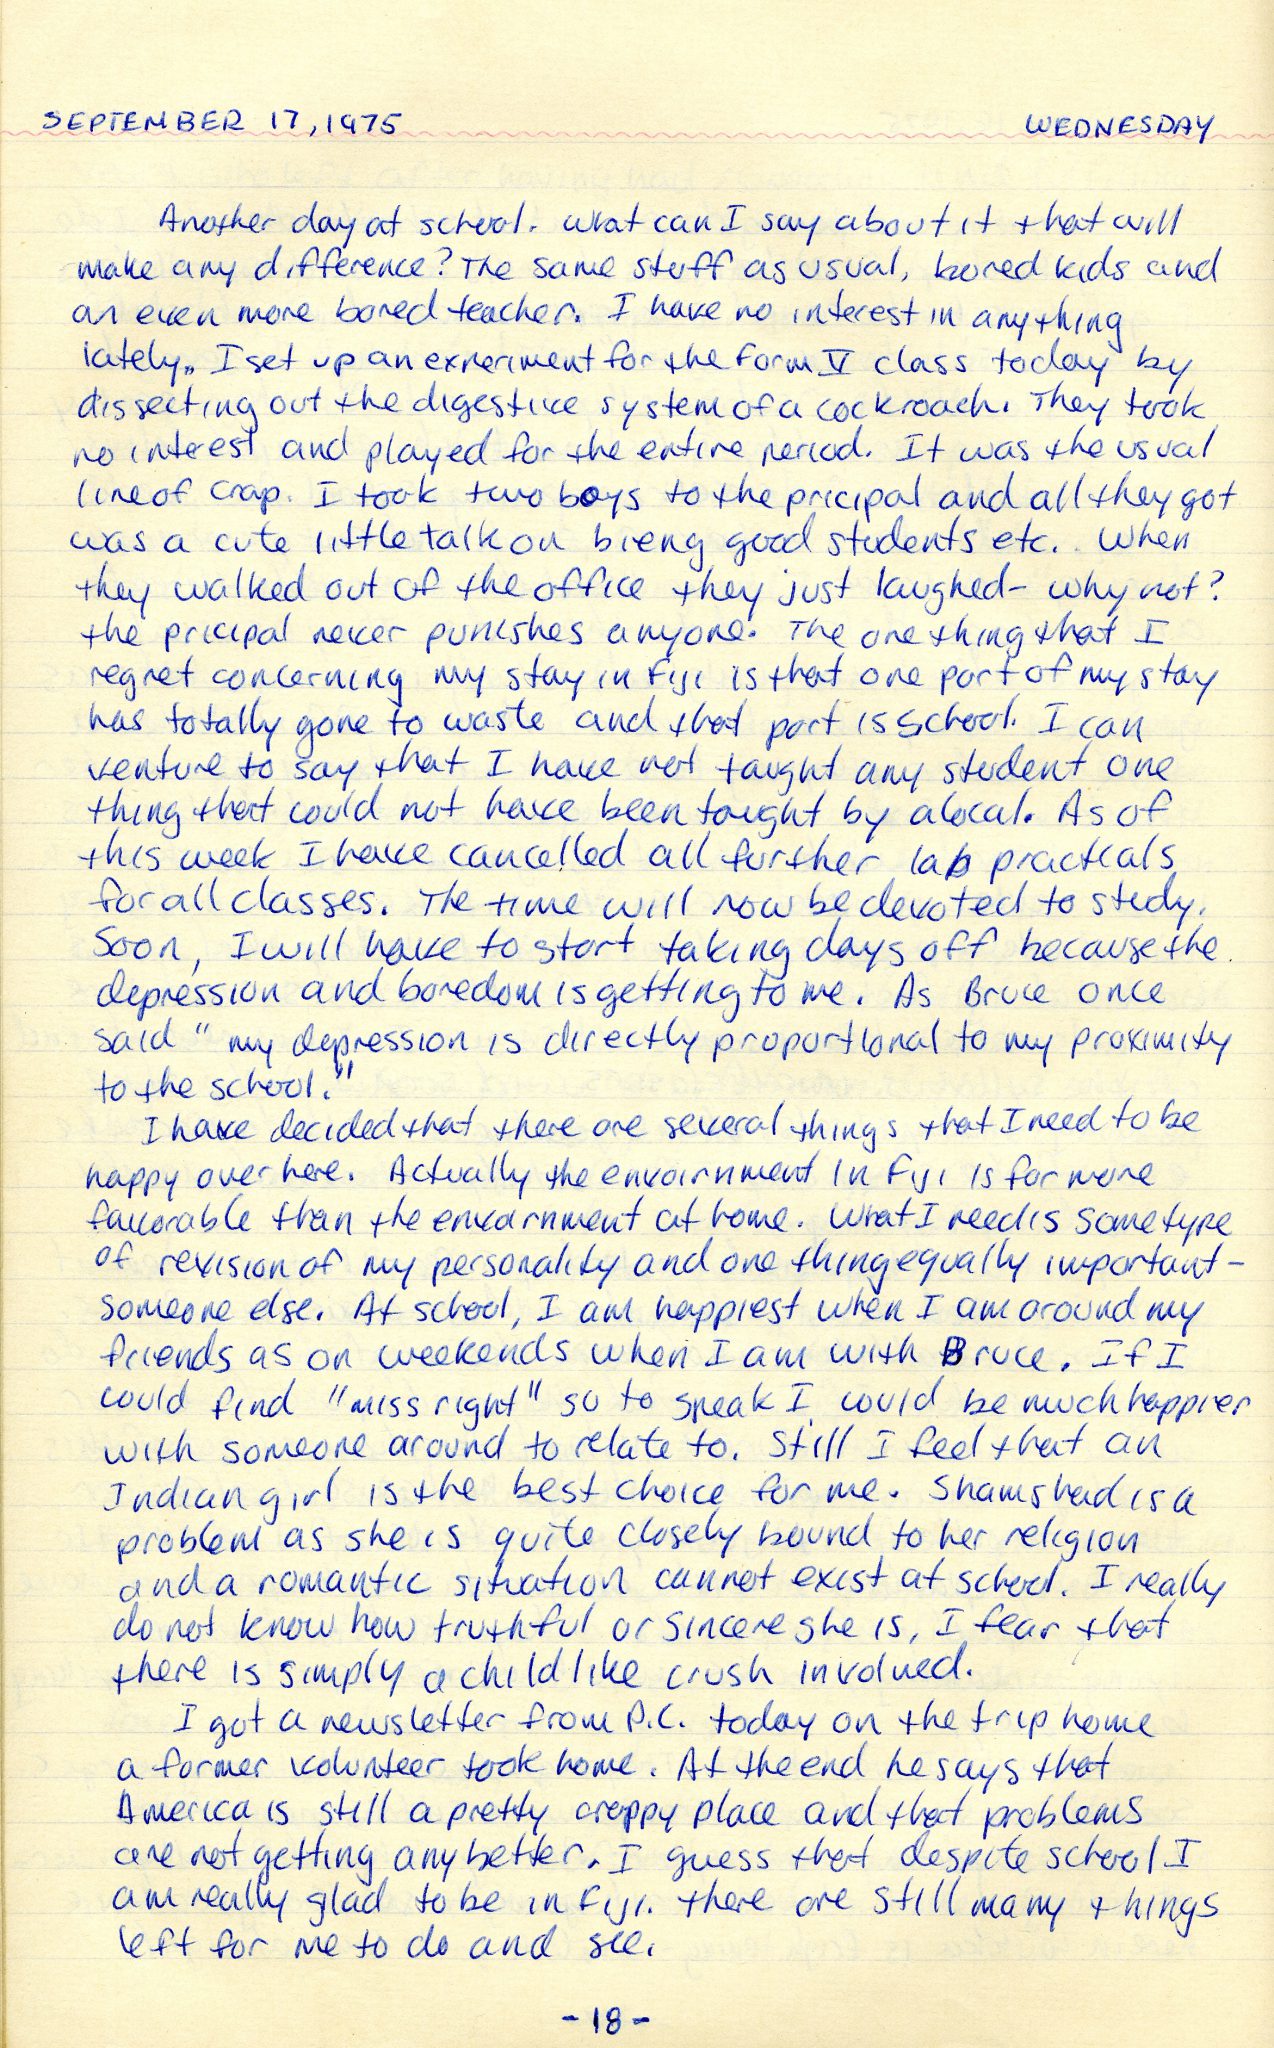 SEPTEMBER 17, 1975 WEDNESDAY
Another day at school. What can I say about it that will
make any difference? The same stuff as usual, bored kids and
an even more bored teacher. I have no interest in anything
lately. I set up an experiment for the Form V class today by
dissecting out the digestive system of a cockroach. They took
no interest and played for the entire period. It was the usual
line of crap. I took two boys to the pricipal and all they got
was a cute little talk on bieng good students etc. When
they walked out of the office they just laughed - why not?
the pricipal never punishes anyone. The one thing that I
regret concerning my stay in Fiji is that one part of my stay
has totally gone to waste and that part is school. I can
venture to say that I have not taught any student one
thing that could not have been taught by a local. As of
this week I have cancelled all further lab practicals
for all classes. The time will now be devoted to study.
Soon, I will have to start taking days off because the
depression and boredom is getting to me. As Bruce once
said "my depression is directly proportional to my proximity
to the school."
I have decided that there are several things that I need to be
happy over here. Actually the envoirnment in Fiji is far more
favorable than the envoirnment at home. What I need is some type
of revision of my personality and one thing equally important -
someone else. At school, I am happiest when I am around my
friends as on weekends when I am with Bruce. If I
could find "miss right" so to speak I could be much happier
with someone around to relate to. Still I feel that an
Indian girl is the best choice for me. Shamshad is a
problem as she is quite closely bound to her religion
and a romantic situation cannot exist at school. I really
do not know how truthful or sincere she is, I fear that
there is simply a childlike crush involved.
I got a newsletter from P.C. today on the trip home
a former volunteer took home. At the end he says that
America is still a pretty crappy place and that problems
are not getting any better. I guess that despite school I
am really glad to be in Fiji. there are still many things
left for me to do and see.
- 18 -